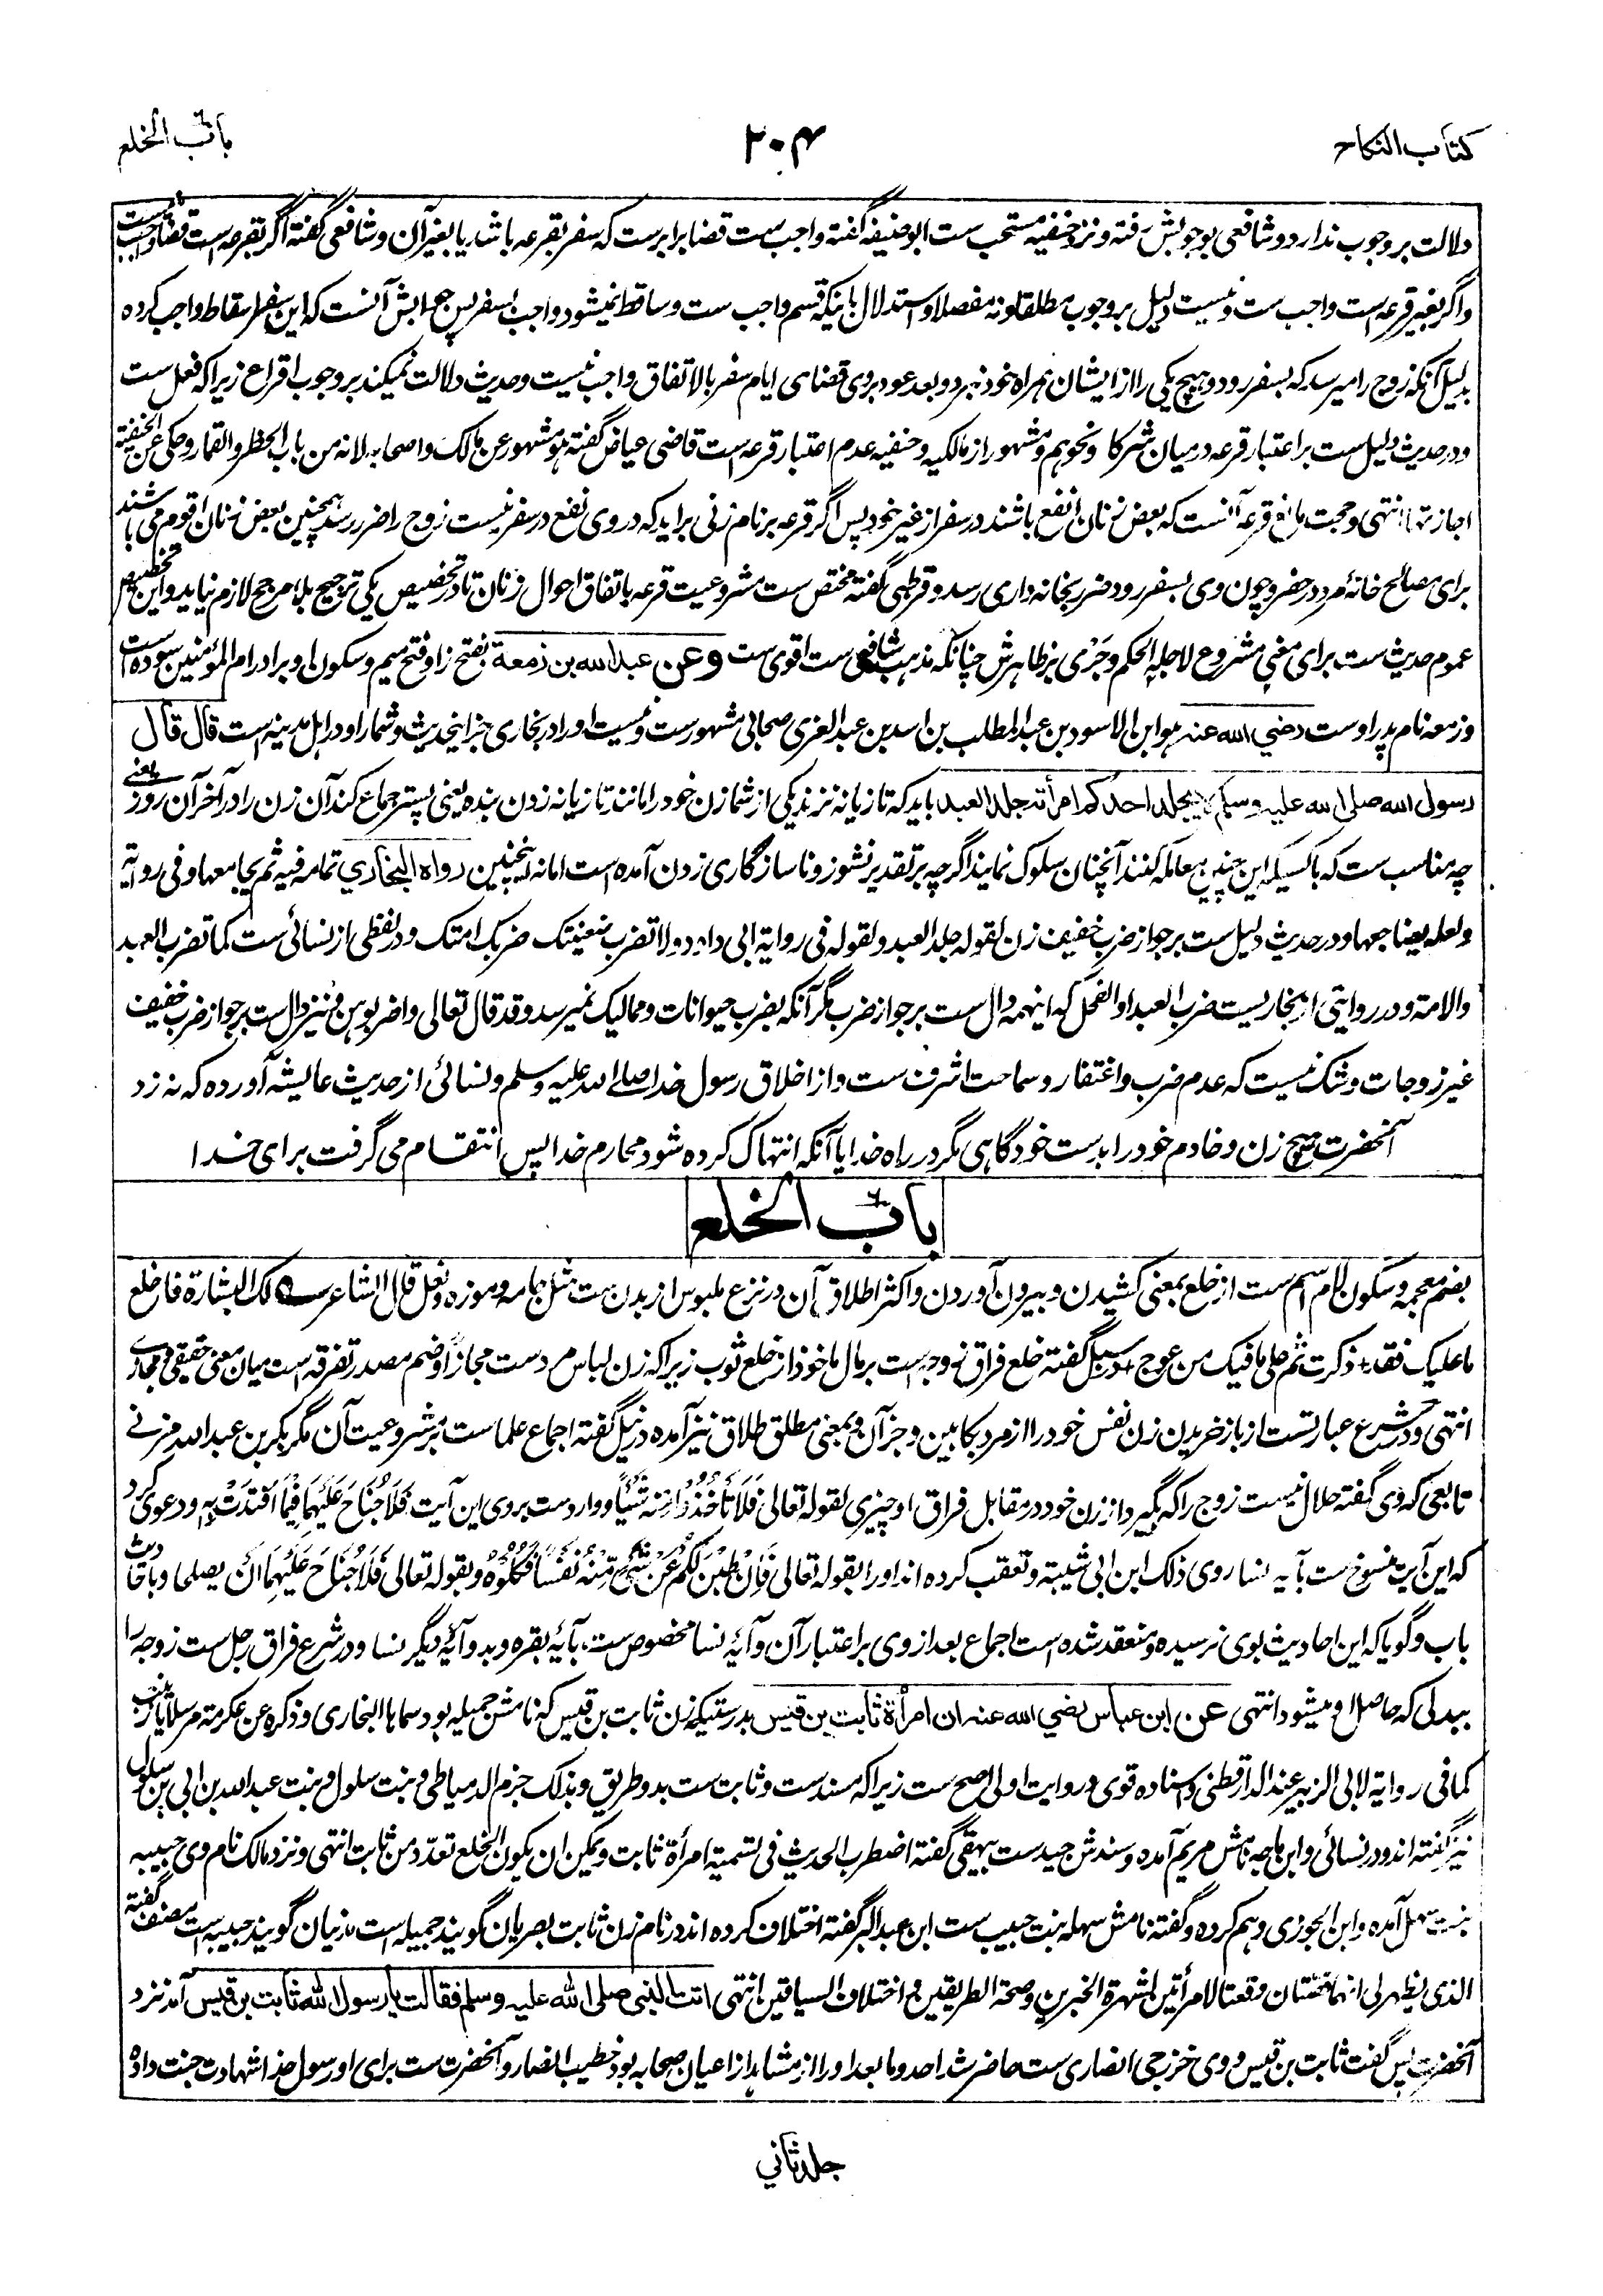 کتاب النکاح
۲۰۴
باب الخلع
دلالت بر وجوب ندارد و شافعی بوجوبش رفته و نزد حنفیه مستحب ست ابو حنیفه گفته واجب ست قضا برابرست که سفر بقرعه باشد یا بغیر آن و شافعی گفته اگر بقرعه است قضا واجب نیست
و اگر بغیر قرعه است واجب ست و نیست دلیل بر وجوب مطلقا و نه مفصلا و استدلال باینکه قسم واجب ست و ساقط نمیشود واجب بسفر پس جوابش آنست که این سفر اسقاط واجب کرده
بدلیل آنکه زوج را میرسد که بسفر رود و هیچ یکی را از ایشان همراه خود نبرد و بعد عود بروی قضای ایام سفر بالاتفاق واجب نیست و حدیث دلالت نمیکند بر وجوب اقراع زیرا که فعل ست
و در حدیث دلیل ست بر اعتبار قرعه در میان شرکا و نحو هم و مشهور از مالکیه و حنفیه عدم اعتبار قرعه است قاضی عیاض گفته هو مشهور عن مالک و اصحابه لانه من باب الحظر و القمار و حکی عن الحنفیة
اجازتها انتهی و حجت مانع قرعه آنست که بعض زنان انفع باشند در سفر از غیر خود پس اگر قرعه بر نام زنی براید که در وی نفع در سفر نیست زوج را ضرر رسد همچنین بعض زنان اقوم می باشند
برای مصالح خانهٔ مرد در حضر و چون وی بسفر رود ضرر بخانه داری رسد و قرطبی گفته مختص ست مشروعیت قرعه باتفاق احوال زنان تا در تخصیص یکی ترجیح بلا مرجح لازم نیاید و این تخصیص
عموم حدیث ست برای معنی مشروع لاجله الحکم و جری بر ظاهرش چنانکه مذهب شافعی ست اقوی ست وعن عبد الله بن زمعة بفتح زا و فتح میم و سکون او برادر ام المؤمنین سوده است
و زمعه نام پدر اوست رضي الله عنه هو ابن الاسود بن عبد المطلب بن اسد بن عبد العزی صحابی مشهورست و نیست او را در بخاری جز این حدیث و شمار او در اهل مدینه است قال قال
رسول الله صلی الله علیه وسلم لا یجلد احدکم امرأته جلد العبد باید که تازیانه نزند یکی از شما زن خود را مانند تازیانه زدن بنده یعنی پستر جماع کند آن زن را در آخر آن روز یعنی
چه مناسب ست که با کسیکه این چنین معامله کنند آنچنان سلوک نمایند اگرچه بر تقدیر نشوز و ناسازگاری زدن آمده است اما نه اینچنین رواه البخاري تمامه فیه ثم یجامعها و فی روایة
ولعله یضاجعها و در حدیث دلیل ست بر جواز ضرب خفیف زن لقوله جلد العبد و لقوله فی روایة ابی داود و لا تضرب ضعینتک ضربک امتک و در لفظی از نسائی ست کما تضرب العبد
والامة و در روایتی از بخاریست ضرب العبد او الفحل که اینهمه دال ست بر جواز ضرب مگر آنکه بضرب حیوانات و ممالیک نمیرسد و قد قال تعالی و اضربوهن و نیز دال ست بر جواز ضرب خفیف
غیر زوجات و شک نیست که عدم ضرب و اغتفار و سماحت اشرف ست و از اخلاق رسول خدا صلے الله علیه وسلم و نسائی از حدیث عایشه آورده که نه زد
آنحضرت هیچ زن و خادم خود را بدست خود گاهی مگر در راه خدا یا آنکه انتهاک کرده شود محارم خدا پس انتقام می گرفت برای خدا
باب الخلع
بضم معجمه و سکون لام اسم ست از خلع بمعنی کشیدن و بیرون آوردن و اکثر اطلاق آن در نزع ملبوس از بدن ست مثل جامه و موزه و نعل قال الشاعر لک البشارة فاخلع
ما علیک فقد ذکرت ثم علی ما فیک من عوج در سبل گفته خلع فراق زوجه است بر مال ماخوذ از خلع ثوب زیرا که زن لباس مردست مجازاً و ضم مصدر تفرقه است میان معنی حقیقی و مجازی
انتهی و در شرع عبارتست از باز خریدن زن نفس خود را از مرد بکابین و جز آن و بمعنی مطلق طلاق نیز آمده در نیل گفته اجماع علماست بر مشروعیت آن مگر بکر بن عبد الله مزنی
تابعی که وی گفته حلال نیست زوج را که بگیرد از زن خود در مقابل فراق او چیزی لقوله تعالی فَلَا تَأْخُذُوا مِنْهُ شَيْئًا و واردست بروی این آیت فَلَا جُنَاحَ عَلَيْهِمَا فِيمَا افْتَدَتْ بِهِ و دعوی کرد
که این آیت منسوخ ست بآیه نسا روی ذلک ابن ابی شیبة و تعقب کرده اند او را بقوله تعالی فَإِنْ طِبْنَ لَكُمْ عَنْ شَيْءٍ مِنْهُ نَفْسًا فَكُلُوهُ و بقوله تعالی فَلَا جُنَاحَ عَلَيْهِمَا أَنْ يصلحا و باحادیث
باب و گویا که این احادیث بوی نرسیده و منعقد شده است اجماع بعد از وی بر اعتبار آن و آیهٔ نسا مخصوص ست بآیهٔ بقره و بدو آیهٔ دیگر نسا و در شرع فراق رجل ست زوجه را
ببدلی که حاصل او میشود انتهی عن ابن عباس رضي الله عنه ان امرأة ثابت بن قیس بدرستیکه زن ثابت بن قیس که نامش جمیله بود سماها البخاری و ذکره عن عکرمة مرسلا یا زینب
کما فی روایة لابی الزبیر عند الدارقطنی و اسناده قوی و روایت اولی اصح ست زیرا که مسندست و ثابت ست بدو طریق و بذلک جزم الدمیاطی و بنت سلول و بنت عبد الله بن ابی بن سلول
نیز گفته اند و در نسائی و ابن ماجه نامش مریم آمده و سندش جیدست بیهقی گفته اضطرب الحدیث فی تسمیة امرأة ثابت و یمکن ان یکون الخلع تعدّد من ثابت انتهی و نزد مالک نام وی حبیبه
بنت سهل آمده و ابن الجوزی وهم کرده و گفته نامش سهله بنت حبیب ست ابن عبد البر گفته اختلاف کرده اند در نام زن ثابت بصریان گویند جمیله است مدنیان گویند حبیبه است مصنف گفته
الذی یظهر لی انهما قصتان وقعتا لامرأتین لشهرة الخبرین و صحة الطریقین و اختلاف السیاقین انتهی اتت النبي صلی الله علیه وسلم فقالت یا رسول الله ثابت بن قیس آمد نزد
آنحضرت پس گفت ثابت بن قیس و وی خزرجی انصاری ست حاضر شد احد و ما بعد او را از مشاهد از اعیان صحابه بود خطیب انصار و آنحضرت ست برای او رسول خدا شهادت جنت داده
جلد ثاني